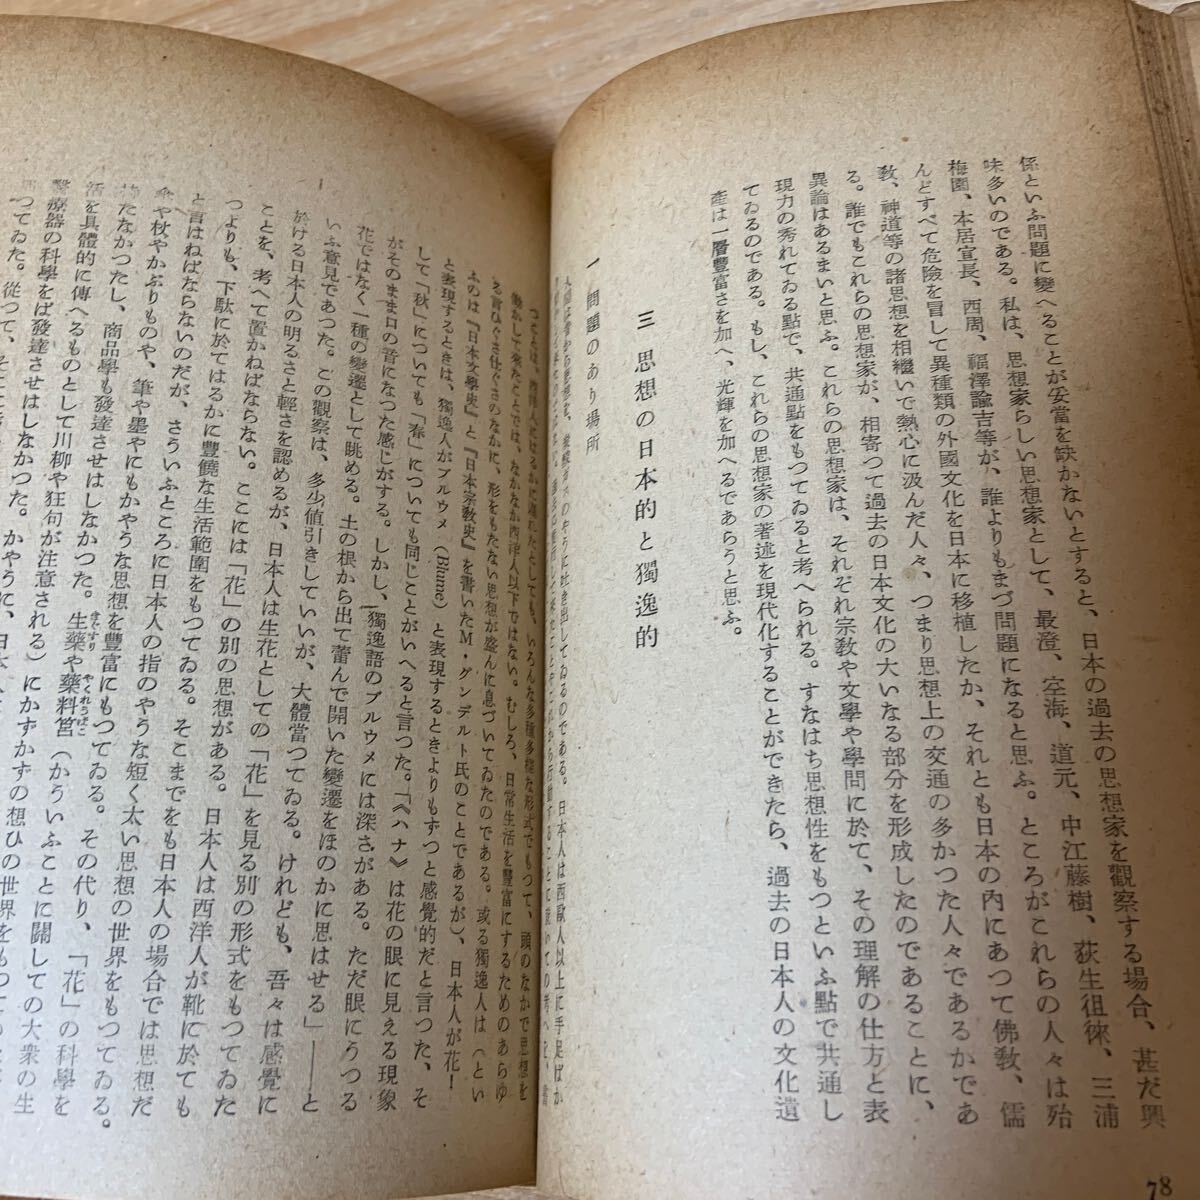 係といふ問題に變へることが妥當を缺かないとすると、日本の過去の思想家を觀察する場合、甚だ興
味多いのである。私は、思想家らしい思想家として、最澄、空海、道元、中江藤樹、荻生徂徠、三浦
梅園、本居宣長、西周、福澤諭吉等が、誰よりもまづ問題になると思ふ。ところがこれらの人々は殆
んどすべて危險を冒して異種類の外國文化を日本に移植したか、それとも日本の內にあつて佛敎、儒
敎、神道等の諸思想を相繼いで熱心に汲んだ人々、つまり思想上の交通の多かつた人々であるかであ
る。誰でもこれらの思想家が、相寄つて過去の日本文化の大いなる部分を形成したのであることに、
異論はあるまいと思ふ。これらの思想家は、それぞれ宗敎や文學や學問に於て、その理解の仕方と表
現力の秀れてゐる點で、共通點をもつてゐると考へられる。すなはち思想性をもつといふ點で共通し
てゐるのである。もし、これらの思想家の著述を現代化することができたら、過去の日本人の文化遺
產は一層豐富さを加へ、光輝を加へるであらうと思ふ。
三 思想の日本的と獨逸的
一 問題のあり場所
78
人間は昔から思想を、
吐き出してゐるのである。日本人は西歐人以上に手足ばか
つてとは、西洋人にはるかに遅れたとしても、いろんな多種多樣な形式でもつて、頭のなかで思想を
働かして來たことでは、なかなか西洋人以下ではない。むしろ、日常生活を豐富にするためのあらゆ
る言ひぐさ仕ぐさのなかに、形をもたない思想が盛んに息づいてゐたのである。或る獨逸人は（とい
ふのは『日本文學史』と『日本宗敎史』を書いたM・グンデルト氏のことであるが）、日本人が花！
と表現するときは、獨逸人がブルウメ（Blume）と表現するときよりもずつと感覺的だと言つた、そ
して「秋」についても「春」についても同じことがいへると言つた。「《ハナ》は花の眼に見える現象
がそのまま口の音になつた感じがする。しかし、獨逸語のブルウメには深さがある。ただ眼にうつる
花ではなく一種の變遷として眺める。土の根から出て蕾んで開いた變遷をほのかに思はせる」――と
いふ意見であつた。この觀察は、多少値引きしていいが、大體當つてゐる。けれども、吾々は感覺に
於ける日本人の明るさと輕さを認めるが、日本人は生花としての「花」を見る別の形式をもつてゐた
ことを、考へて置かねばならない。ここには「花」の別の思想がある。日本人は西洋人が靴に於ても
つよりも、下駄に於てはるかに豐饒な生活範圍をもつてゐる。そこまでをも日本人の場合では思想だ
と言はねばならないのだが、さういふところに日本人の指のやうな短く太い思想の世界をもつてゐる。
傘や杖やかぶりものや、筆や墨やにもかやうな思想を豐富にもつてゐる。その代り、「花」の科學を
たなかつたし、商品學も發達させはしなかつた。生藥や藥料筥（かういふことに關しての大衆の生
活を具體的に傳へるものとして川柳や狂句が注意される）にかずかずの想ひの世界をもつ
療器の科學をば發達させはしなかつた。かやうに、日本
つてゐた。從つて、そこに